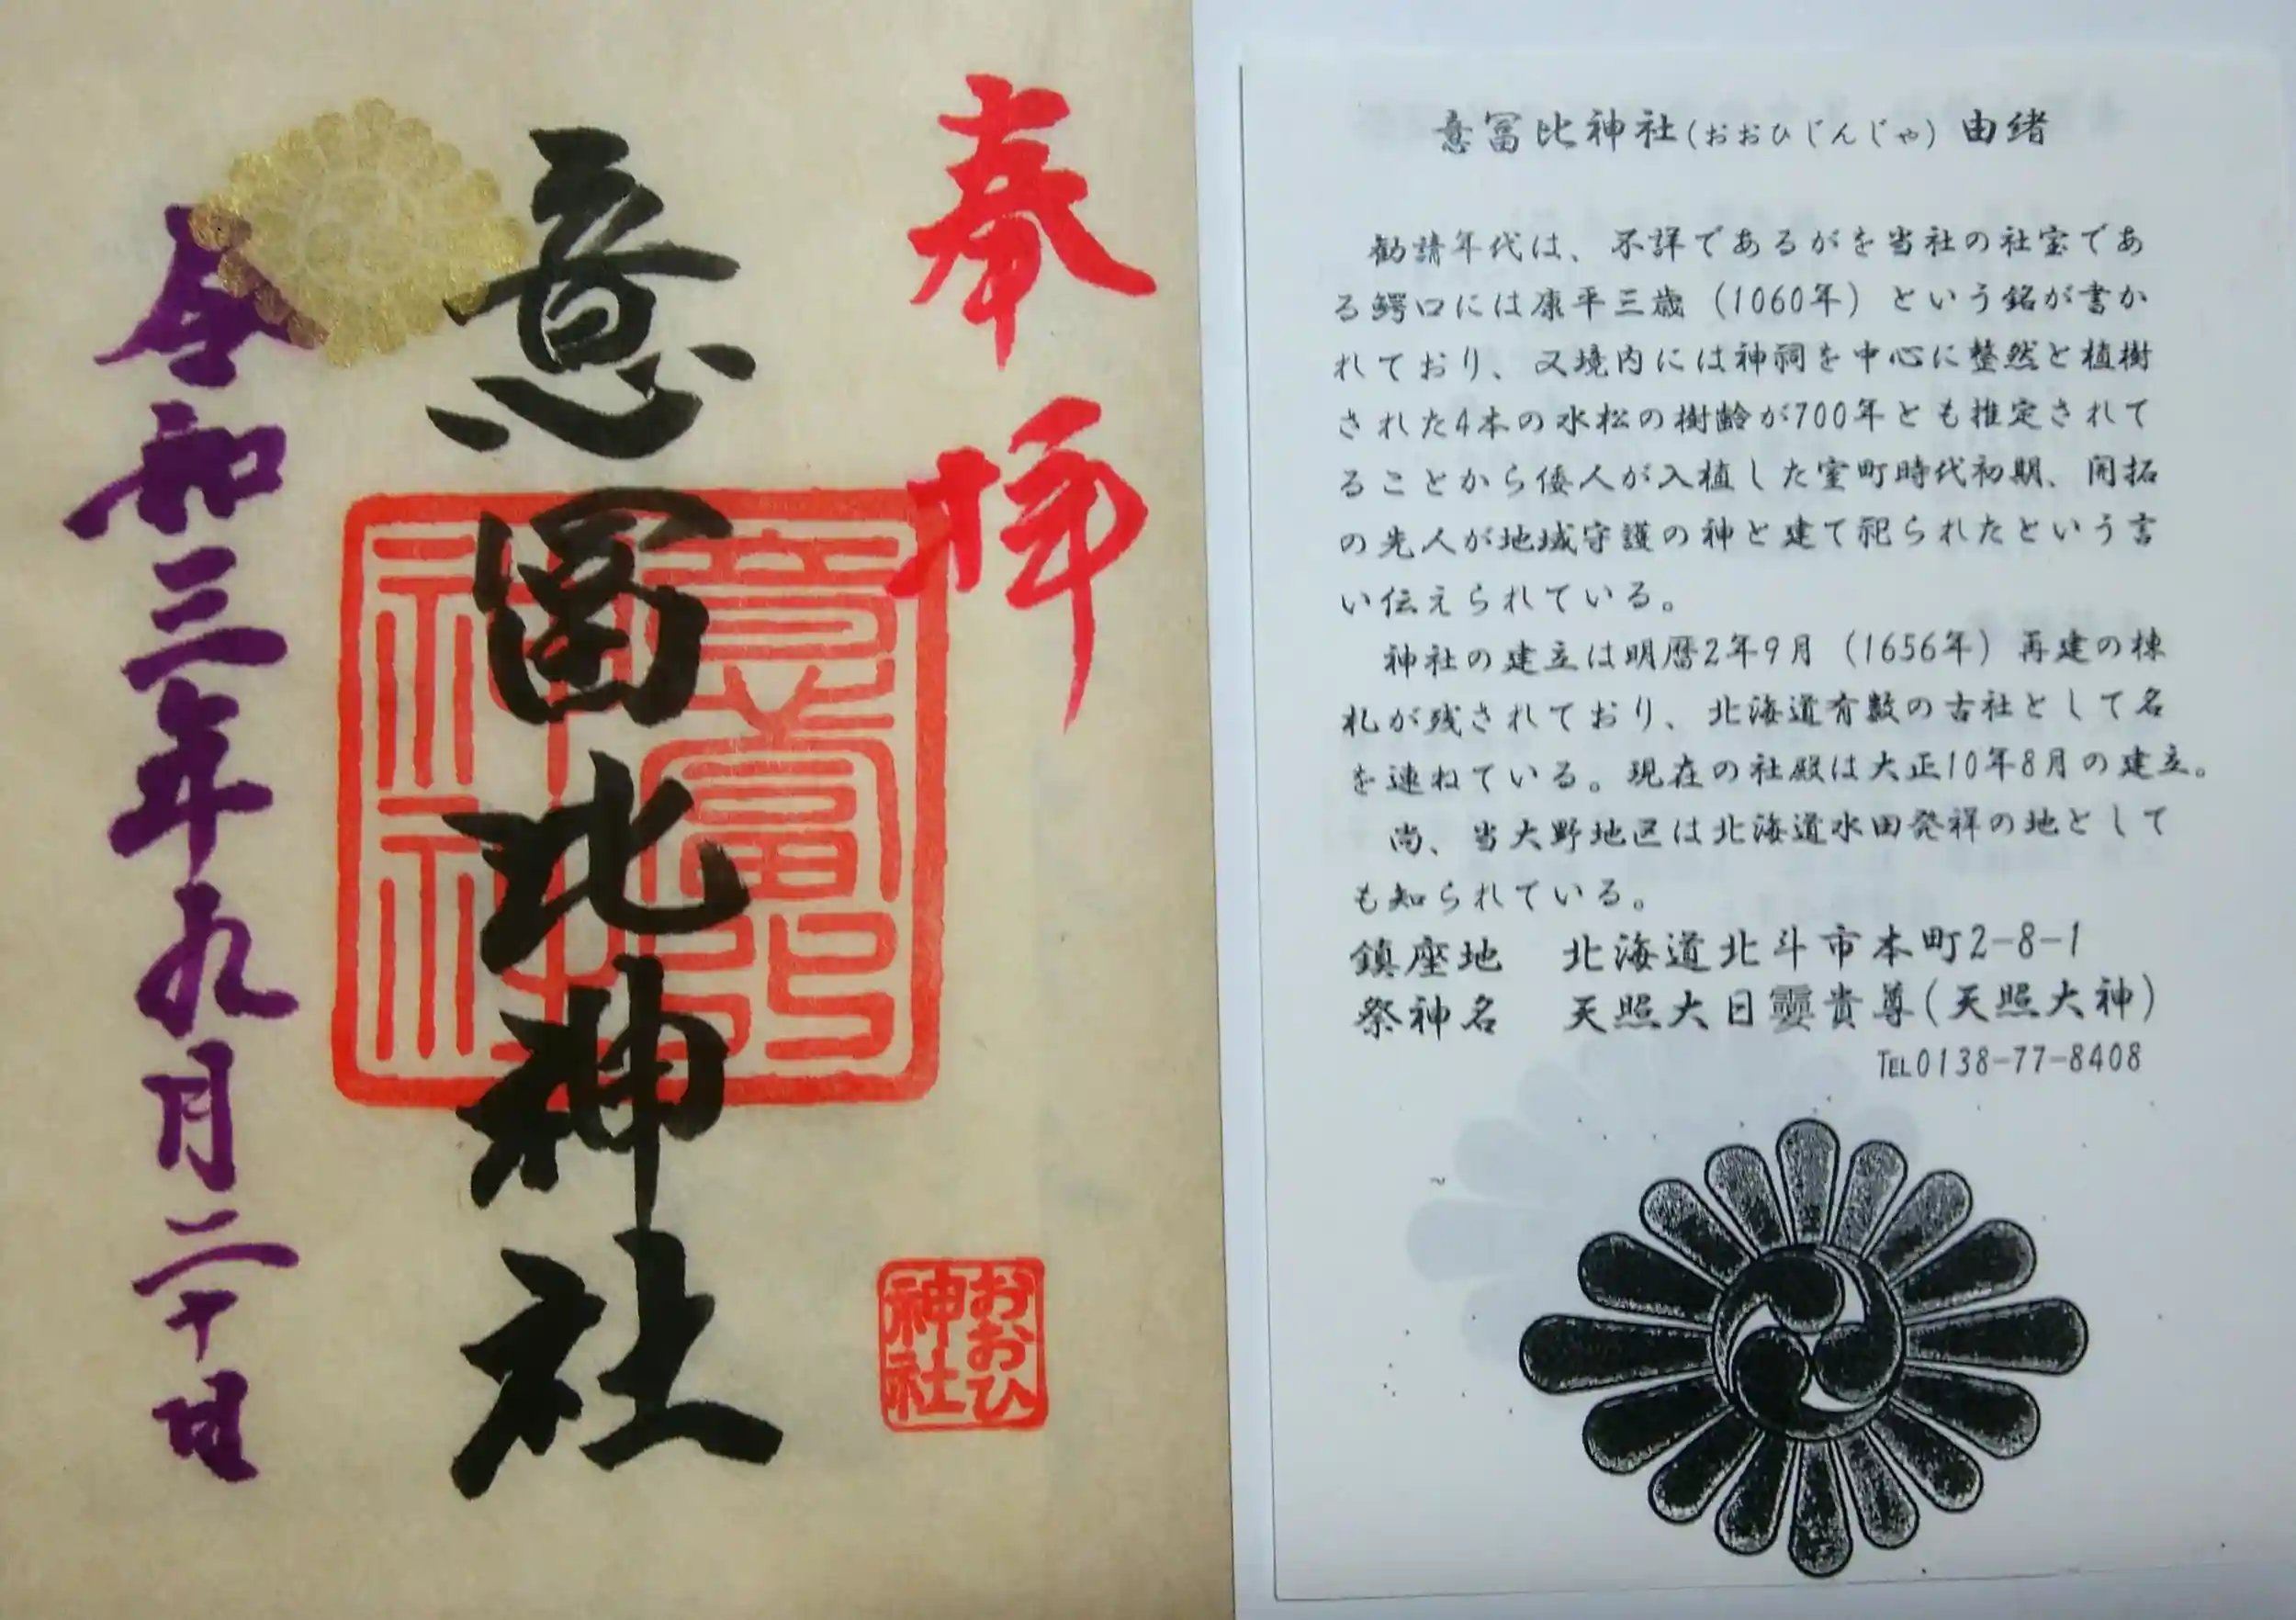 奉拝
意冨比神社
令和三年九月二十日
意富比
神社
おおひ
神社
意冨比神社(おおひじんじゃ) 由緒
勧請年代は、不詳であるがを当社の社宝であ
る鰐口には康平三歳（1060年）という銘が書か
れており、又境内には神祠を中心に整然と植樹
された4本の水松の樹齢が700年とも推定されて
ることから倭人が入植した室町時代初期、開拓
の先人が地域守護の神と建て祀られたという言
い伝えられている。
神社の建立は明暦2年9月（1656年）再建の棟
札が残されており、北海道有数の古社として名
を連ねている。現在の社殿は大正10年8月の建立。
尚、当大野地区は北海道水田発祥の地として
も知られている。
鎮座地　北海道北斗市本町2-8-1
祭神名　天照大日孁貴尊(天照大神)
TEL0138-77-8408